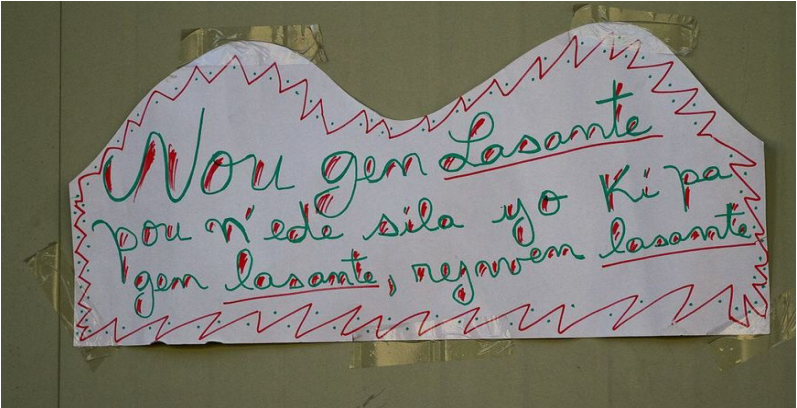 Nou gen Lasante
pou n'ede sila yo ki pa
gen lasante, rejwenn lasante.